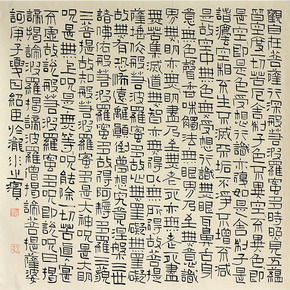 觀自在菩薩行深般若波羅蜜多時照見五蘊
皆空度一切苦厄舍利子色不異空空不異色即
是空空即是色受想行識亦復如是舍利子是
諸法空相不生不滅不垢不淨不增不減
是故空中無色無受想行識無眼耳鼻舌身
意無色聲香味觸法無眼界乃至無意識
界無無明亦無無明盡乃至無老死亦無老死盡
無苦集滅道無智亦無得以無所得故菩提
薩埵依般若波羅蜜多故心無罣礙無罣礙
故無有恐怖遠離顛倒夢想究竟涅槃三世
諸佛依般若波羅蜜多故得阿耨多羅三藐
三菩提故知般若波羅蜜多是大神咒是大明
咒是無上咒是無等等咒能除一切苦真實
不虛故說般若波羅蜜多咒即說咒曰揭
諦揭諦波羅揭諦波羅僧揭諦菩提薩婆
訶庚子夏